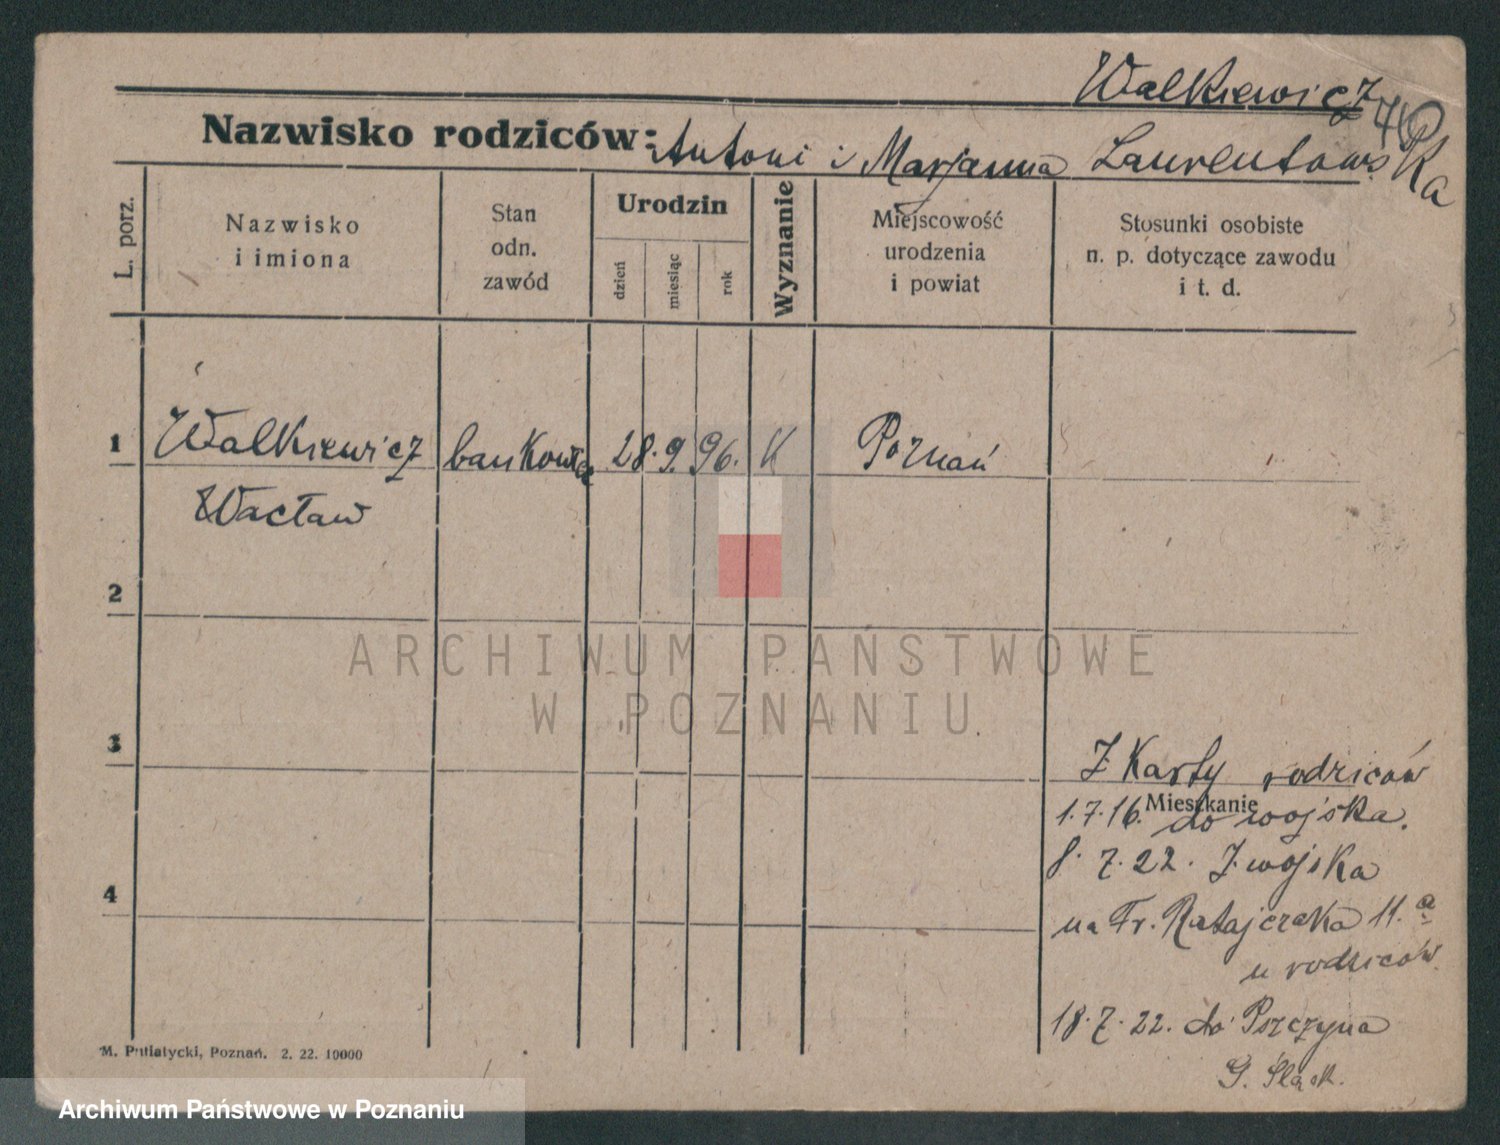 Walkiewicz
Nazwisko rodziców: Antoni i Marjanna Laurentowska
L. porz.
Nazwisko i imiona
Stan odn. zawód
Urodzin
dzień
miesiąc
rok
Wyznanie
Miejscowość urodzenia i powiat
Stosunki osobiste n. p. dotyczące zawodu i t. d.
1 Walkiewicz bankowiec 28. 9. 96. K Poznań
Wacław
2
ARCHIWUM PAŃSTWOWE
W POZNANIU
3
Z Karty rodziców
Mieszkanie
1.7.16. do wojska.
8. 7. 22. Z wojska
4
na Fr. Ratajczaka 11.a
u rodziców
18. 7. 22. do Pszczyna
G. Śląsk.
M. Putiatycki, Poznań. 2. 22. 10000
Archiwum Państwowe w Poznaniu